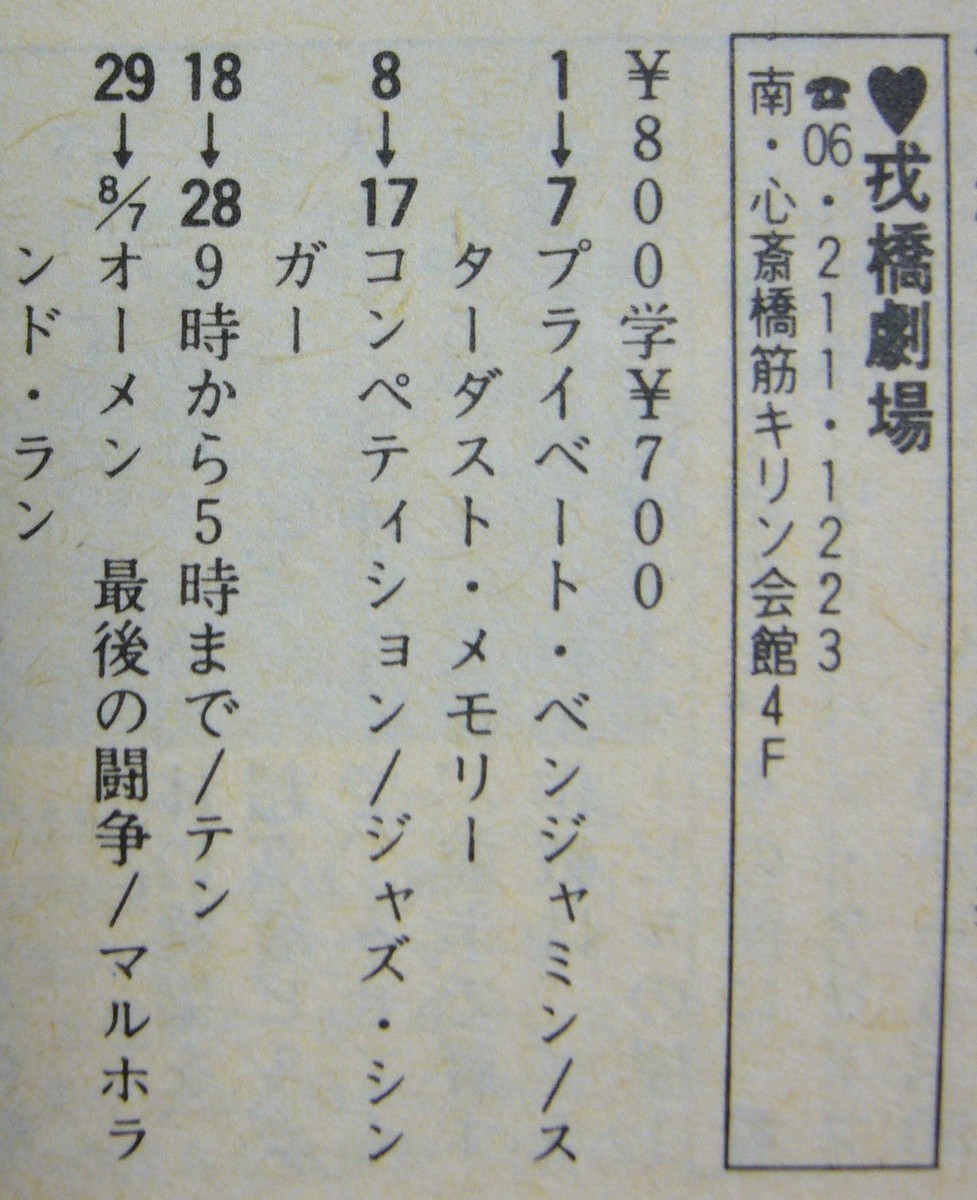 ♥戎橋劇場
☎06・211・1223
南・心斎橋筋キリン会館4F
¥800学¥700
1→7プライベート・ベンジャミン/ス
ターダスト・メモリー
8→17コンペティション/ジャズ・シン
ガー
18→28 9時から5時まで/テン
29→8/7オーメン 最後の闘争/マルホラ
ンド・ラン